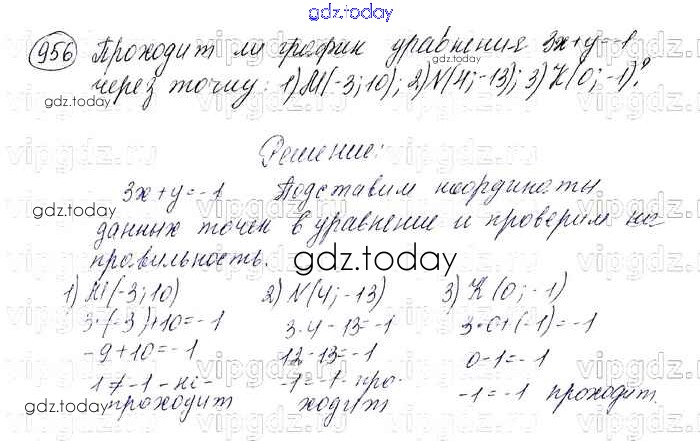 gdz.today
956 Проходит ли график уравнения 3x+y=-1
через точку: 1) М(-3; 10); 2) N(4; -13); 3) К(0; -1)?
gdz.today
Решение:
3x+y=-1 Подставим координаты
gdz.today
данных точек в уравнение и проверим на
правильность.
gdz.today
1) М(-3; 10) 2) N(4; -13) 3) К(0; -1)
3·(-3)+10=-1 3·4-13=-1 3·0+(-1)=-1
-9+10=-1 12-13=-1 0-1=-1
1≠-1 - не- -1=-1 - про- -1=-1 проходит.
проходит ходит
gdz.today
gdz.today
gdz.today
vipgdz.today